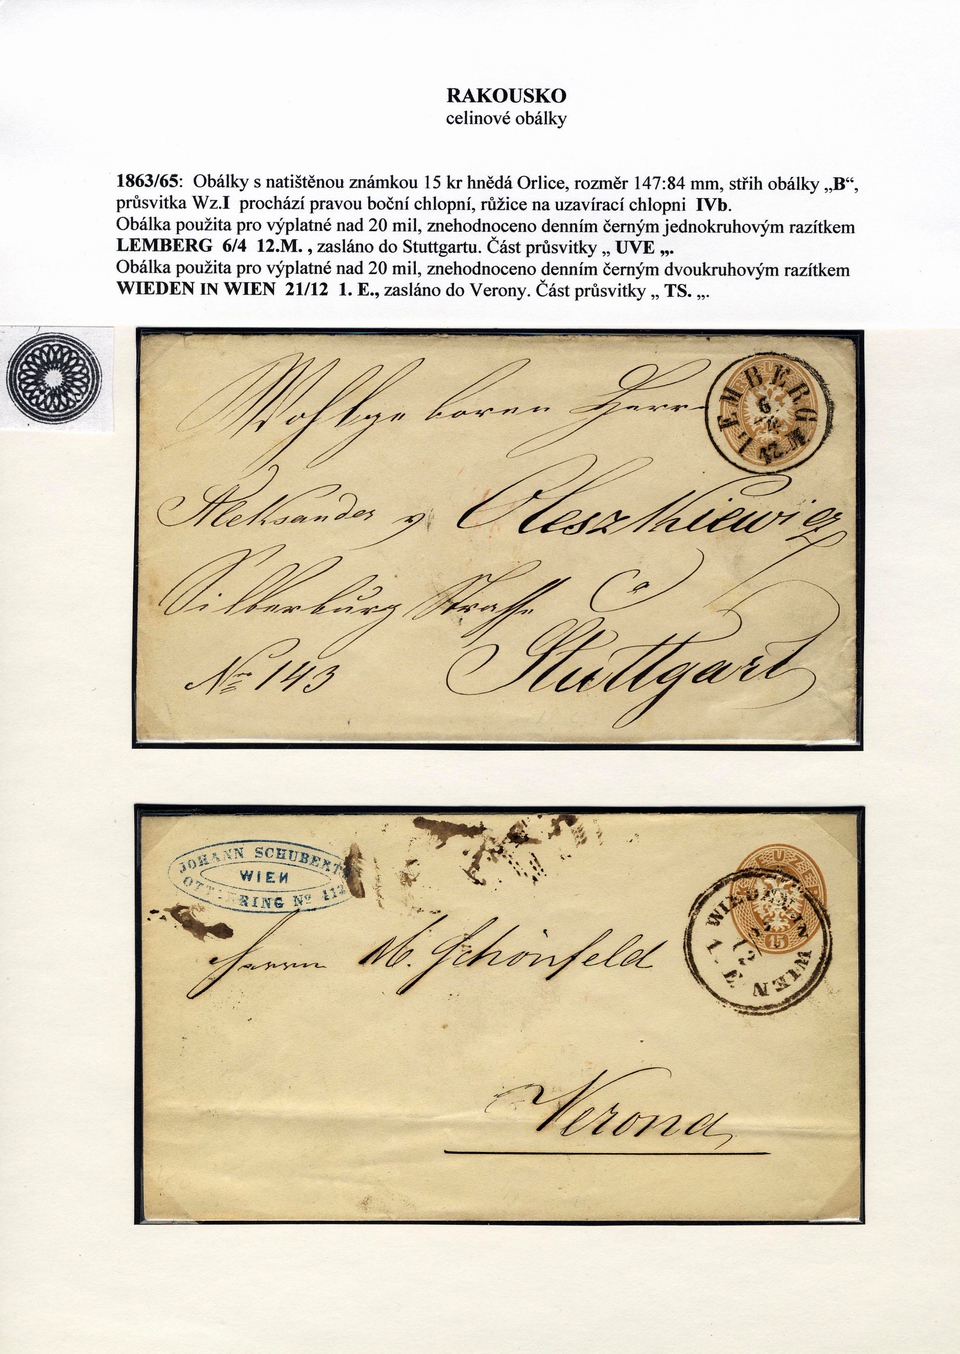 RAKOUSKO
celinové obálky
1863/65: Obálky s natištěnou známkou 15 kr hnědá Orlice, rozměr 147:84 mm, střih obálky „B“,
průsvitka Wz.I prochází pravou boční chlopní, růžice na uzavírací chlopni IVb.
Obálka použita pro výplatné nad 20 mil, znehodnoceno denním černým jednokruhovým razítkem
LEMBERG 6/4 12.M. , zasláno do Stuttgartu. Část průsvitky „ UVE „.
Obálka použita pro výplatné nad 20 mil, znehodnoceno denním černým dvoukruhovým razítkem
WIEDEN IN WIEN 21/12 1. E., zasláno do Verony. Část průsvitky „ TS. „.
LEMBERG
6
12.M
Wohlgeboren Herrn
Aleksander v Oleszkiewicz
Silberburg Strasse
Stuttgart
Nro 143
JOHANN SCHUBERT
WIEN
OTTAKRING No 112
KREUZER
15
WIEDEN IN WIEN
12
1. E
Herrn M. Schönfeld
Verona